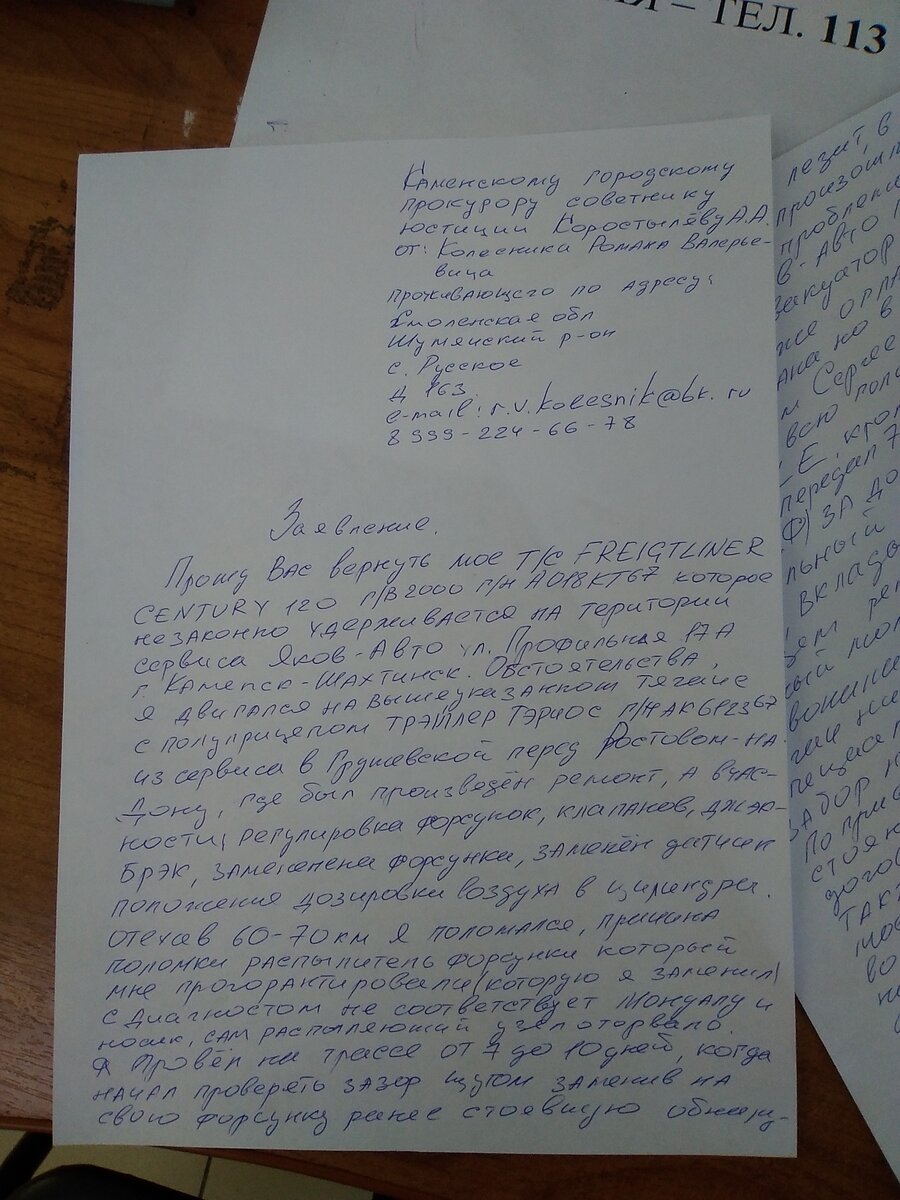 – ТЕЛ. 113
Каменскому городскому
прокурору советнику
юстиции Коростылёву А.А.
от: Колесника Романа Валерье-
вича
проживающего по адресу:
Смоленская обл
Шумяиский р-он
с. Русское
д 163.
e-mail: r.v.kolesnik@bk.ru
8 999-224-66-78
Заявление.
Прошу ВАС вернуть мое Т/С FREIGTLINER
CENTURY 120 г/в 2000 г/н А018КТ67 которое
незаконно удерживается на територии
сервиса Яков-Авто ул. Профильная 17А
г. Каменск-Шахтинск. Обстоятельства,
я двигался на вышеуказанном тягаче
с полуприцепом ТРЭЙЛЕР ТЭРИОС г/н АК6912367
из сервиса в Грушевской перед Ростовом-на-
Дону, где был произведён ремонт, а вчас-
ности, регулировка форсунок, клапанов, джэк-
Брэк, замененена форсунки, заменён датчик
положения дозировки воздуха в цилиндры.
Отехав 60-70 км я поломался, причина
поломки распылитель форсунки который
мне прогорантировали (которую я заменил)
с диагностом не соответствует Мануалу и
носик, сам распыляющий узел оторвало.
Я провёл на трассе от 7 до 10 дней, когда
начал проверять зазор щупом заменив на
свою форсунку ранее стоявшую обнару-
лезит, в
произошл
проблем
в-Авто
эвакуатор
же
ана но в
м Серге
всю пол
Е, кро
передал 7
Ф) ЗА до
льный
вклад